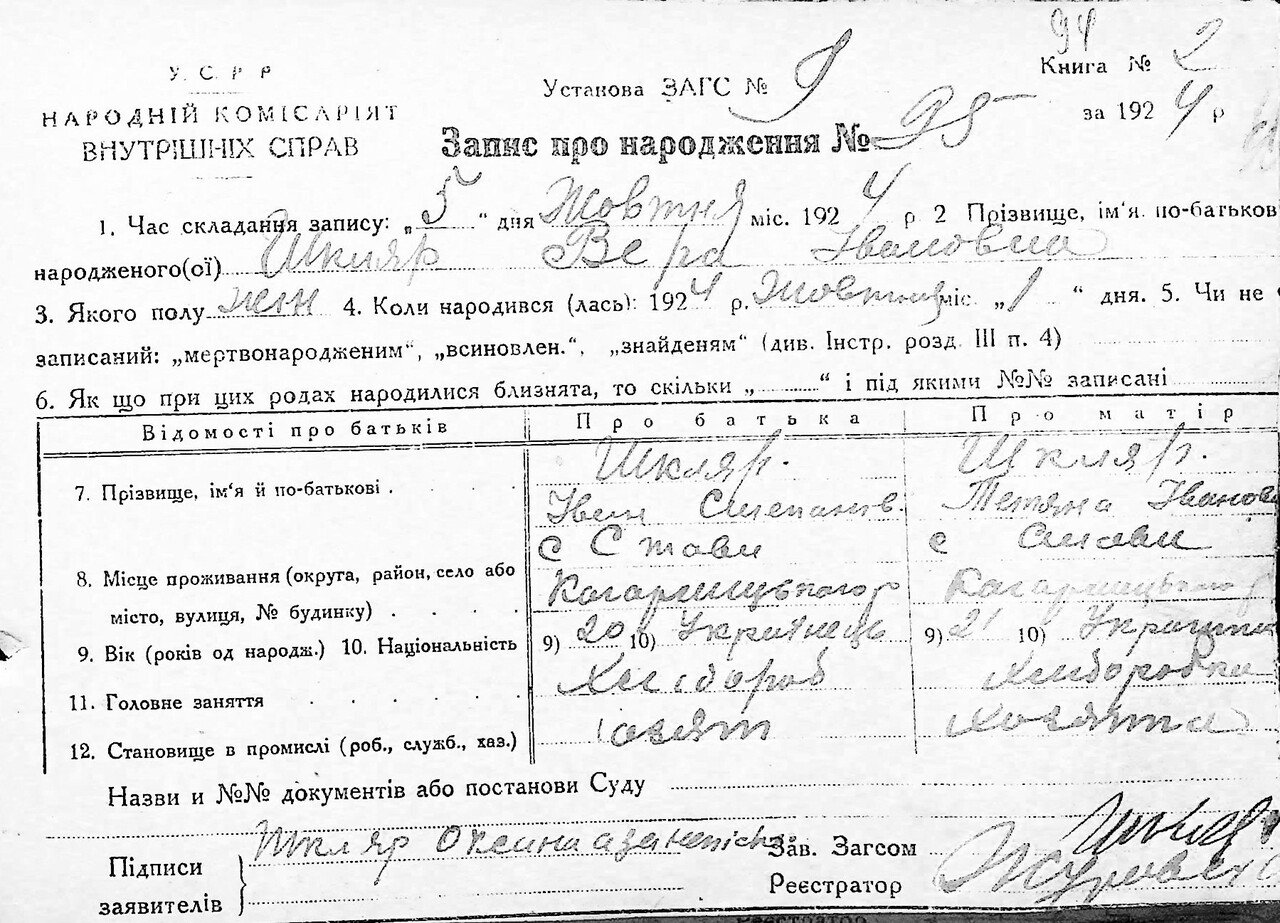 94
У. С. Р Р
НАРОДНІЙ КОМІСАРІЯТ
ВНУТРІШНІХ СПРАВ
Установа ЗАГС № 9
Книга № 2
за 1924 р
Запис про народження № 95
1. Час складання запису: „5“ дня Жовтня міс. 1924 р 2 Прізвище, ім'я. по-батьков
народженого(ої) Шкляр Вера Івановна
3. Якого полу жін 4. Коли народився (лась): 1924 р. Жовтня міс. „1“ дня. 5. Чи не
записаний: „мертвонародженим“, „всиновлен.“, „знайденям“ (див. Інстр. розд. III п. 4)
6. Як що при цих родах народилися близнята, то скільки „ “ і під якими №№ записані
Відомості про батьків Про батька Про матір
7. Прізвище, ім‘я й по-батькові . Шкляр. Шкляр.
Іван Степанів. Тетяна Іванова
с Стави с Стави
8. Місце проживання (округа, район, село або
місто, вулиця, № будинку) . Кагарлицького р Кагарлицького р
9. Вік (років од народж.) 10. Національність 9) 20 10) Українець 9) 21 10) Українка
11. Головне заняття Хлібороб Хліборобка
12. Становище в промислі (роб., служб., хаз.)
Назви и №№ документів або постанови Суду
Підписи
заявителів
Шкляр
Зав. Загсом
Реєстратор